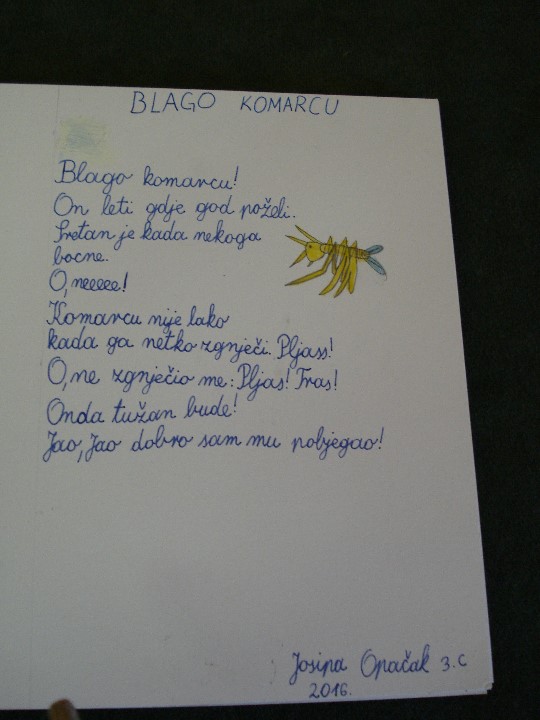 BLAGO KOMARCU
Blago komarcu!
On leti gdje god poželi.
Sretan je kada nekoga
bocne.
O, neeeee!
Komarcu nije lako
kada ga netko zgnječi. Pljass!
O, ne zgnječio me: Pljas! Tras!
Onda tužan bude!
Jao, Jao dobro sam mu pobjegao!
Josipa Opačak 3.c
2016.